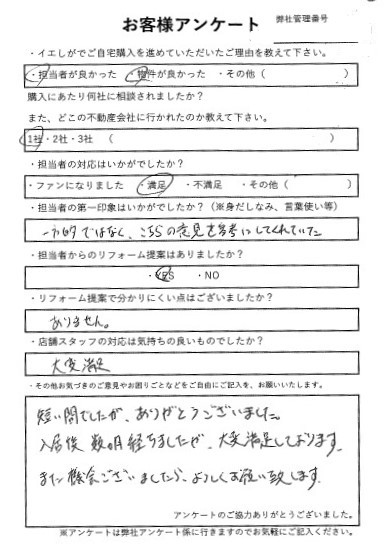 お客様アンケート 弊社管理番号
・イエしがでご自宅購入を進めていただいたご理由を教えて下さい。
・担当者が良かった ・物件が良かった ・その他（ ）
購入にあたり何社に相談されましたか？
また、どこの不動産会社に行かれたのか教えて下さい。
1社・2社・3社 （ ）
・担当者の対応はいかがでしたか？
・ファンになりました ・満足 ・不満足 ・その他（ ）
・担当者の第一印象はいかがでしたか？（※身だしなみ、言葉使い等）
一方的ではなく、こちらの意見を参考にしてくれていた
・担当者からのリフォーム提案はありましたか？
・YES ・NO
・リフォーム提案で分かりにくい点はございましたか？
ありません。
・店舗スタッフの対応は気持ちの良いものでしたか？
大変満足
・その他お気づきのご意見やお困りごとなどをご自由にご記入を、お願いいたします。
短い間でしたが、ありがとうございました。
入居後 数ヵ月経ちましたが、大変満足しております。
また機会ございましたら、よろしくお願い致します。
アンケートのご協力ありがとうございました。
※アンケートは弊社アンケート係に行きますのでお気軽にご記入ください。